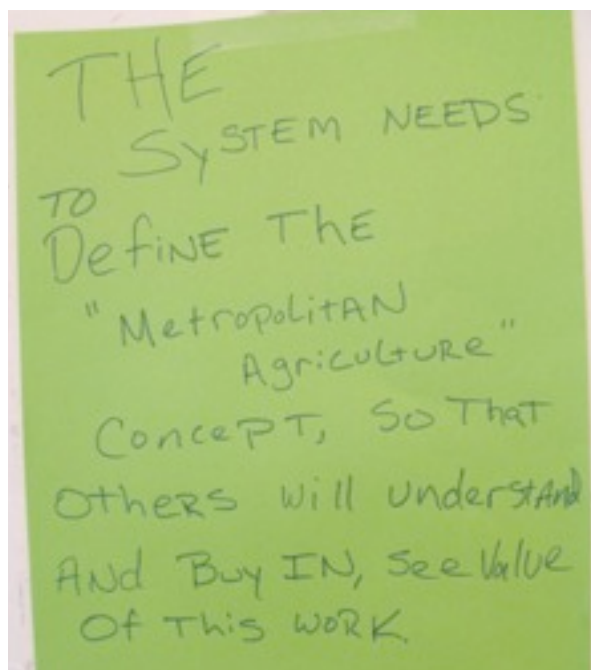 THE
SYSTEM NEEDS
TO
Define The
"Metropolitan
Agriculture"
Concept, So That
Others Will Understand
And Buy IN, See Value
Of This Work.